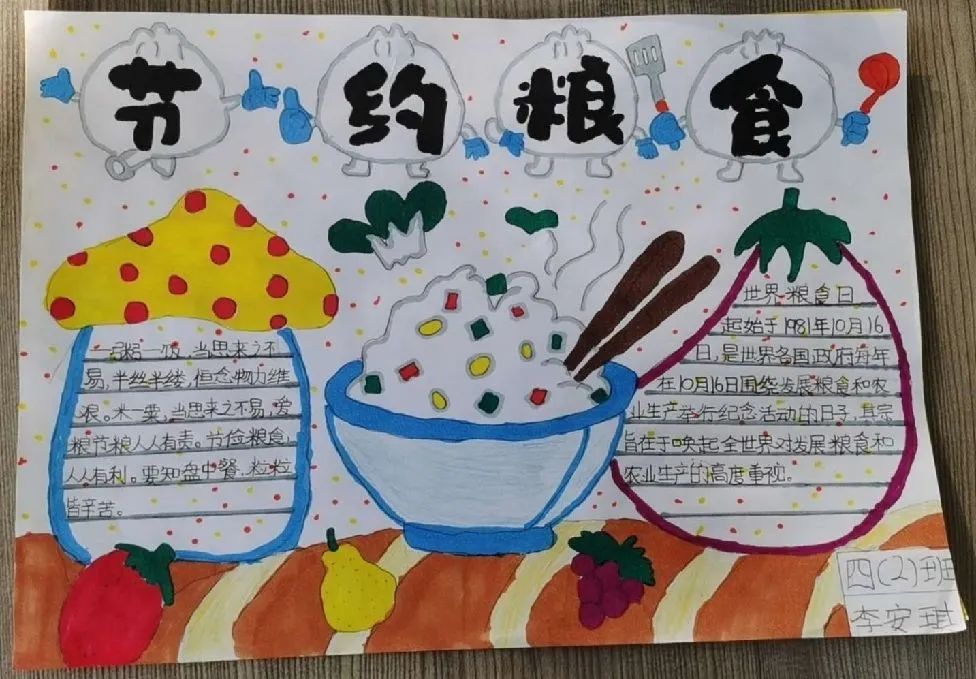 节约粮食
一粥一饭,当思来之不
易,半丝半缕,恒念物力维
艰。米一粟,当思来之不易,爱
粮节粮人人有责。节俭粮食,
人人有利。要知盘中餐,粒粒
皆辛苦。
世界粮食日
起始于1981年10月16
日,是世界各国政府每年
在10月16日围绕发展粮食和农
业生产举行纪念活动的日子,其宗
旨在于唤起全世界对发展粮食和
农业生产的高度重视。
四(2)班
李安琪